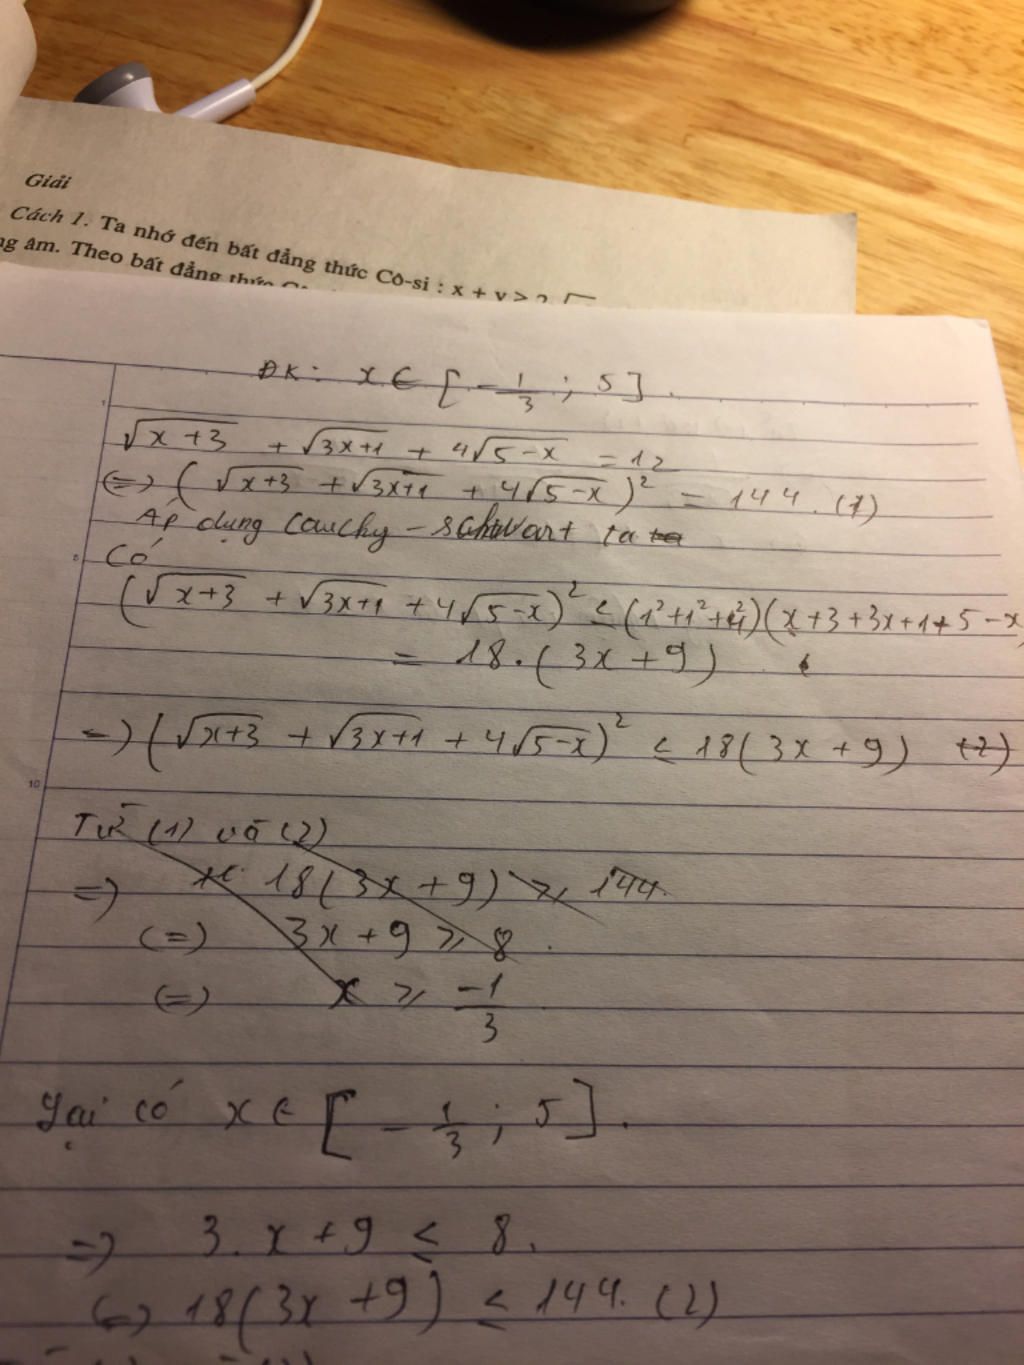 Giải
Cách 1. Ta nhớ đến bất đẳng thức Cô-si : x + y ≥ 2√
ng âm. Theo bất đẳng thức
ĐK: x ∈ [-1/3 ; 5].
√(x+3) + √(3x+1) + 4√(5-x) = 12
(=) (√(x+3) + √(3x+1) + 4√(5-x))² = 144. (1)
Áp dụng Cauchy - Schwart ta
Có
(√(x+3) + √(3x+1) + 4√(5-x))² ≤ (1²+1²+4²)(x+3+3x+1+5-x
= 18.(3x+9)
=) (√(x+3) + √(3x+1) + 4√(5-x))² ≤ 18(3x+9) (2)
Từ (1) và (2)
=) 18(3x+9) ≥ 144.
(=) 3x+9 ≥ 8.
(=) x ≥ -1/3
Lại có x ∈ [-1/3 ; 5].
=) 3.x+9 ≤ 8.
(=) 18(3x+9) ≤ 144. (2)